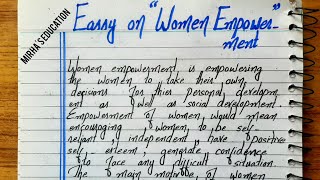 MIRHA'S EDUCATION
Essay on "Women Empower-
ment"
Women empowerment is empowering
the women to take their own
decisions for their personal developm
ent as well as social development.
Empowerment of women would mean
encouraging women to be self-
reliant, independent, have positive
self-esteem, generate confidence
to face any difficult situation.
The main motive of women